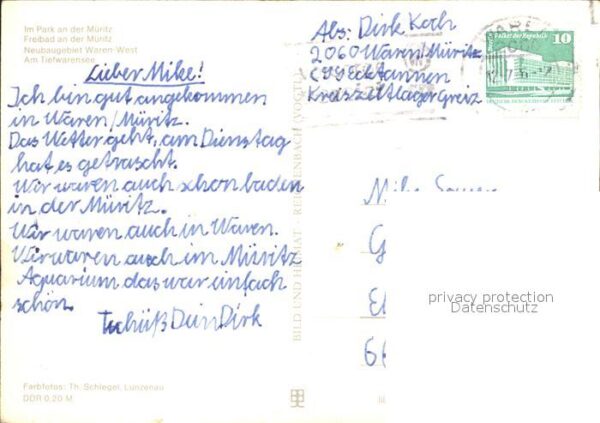 Im Park an der Müritz
Freibad an der Müritz
Neubaugebiet Waren-West
Am Tiefwarensee
Lieber Mike!
Ich bin gut angekommen
in Waren/Müritz.
Das Wetter geht, am Dienstag
hat es getrascht.
Wir waren auch schon baden
in der Müritz.
Wir waren auch in Waren.
Wir waren auch im Müritz
Aquarium das war einfach
schön.
Tschüß Dein Dirk
Farbfotos: Th. Schlegel, Lunzenau
DDR 0,20 M
BILD UND HEIMAT REICHENBACH (VOGTL)
Abs: Dirk Koch
2060 Waren/Müritz
C99 Ecktannen
Kreiszeltlager Greiz
Palast der Republik 10
DEUTSCHE DEMOKRATISCHE REPUBLIK
66
privacy protection
Datenschutz